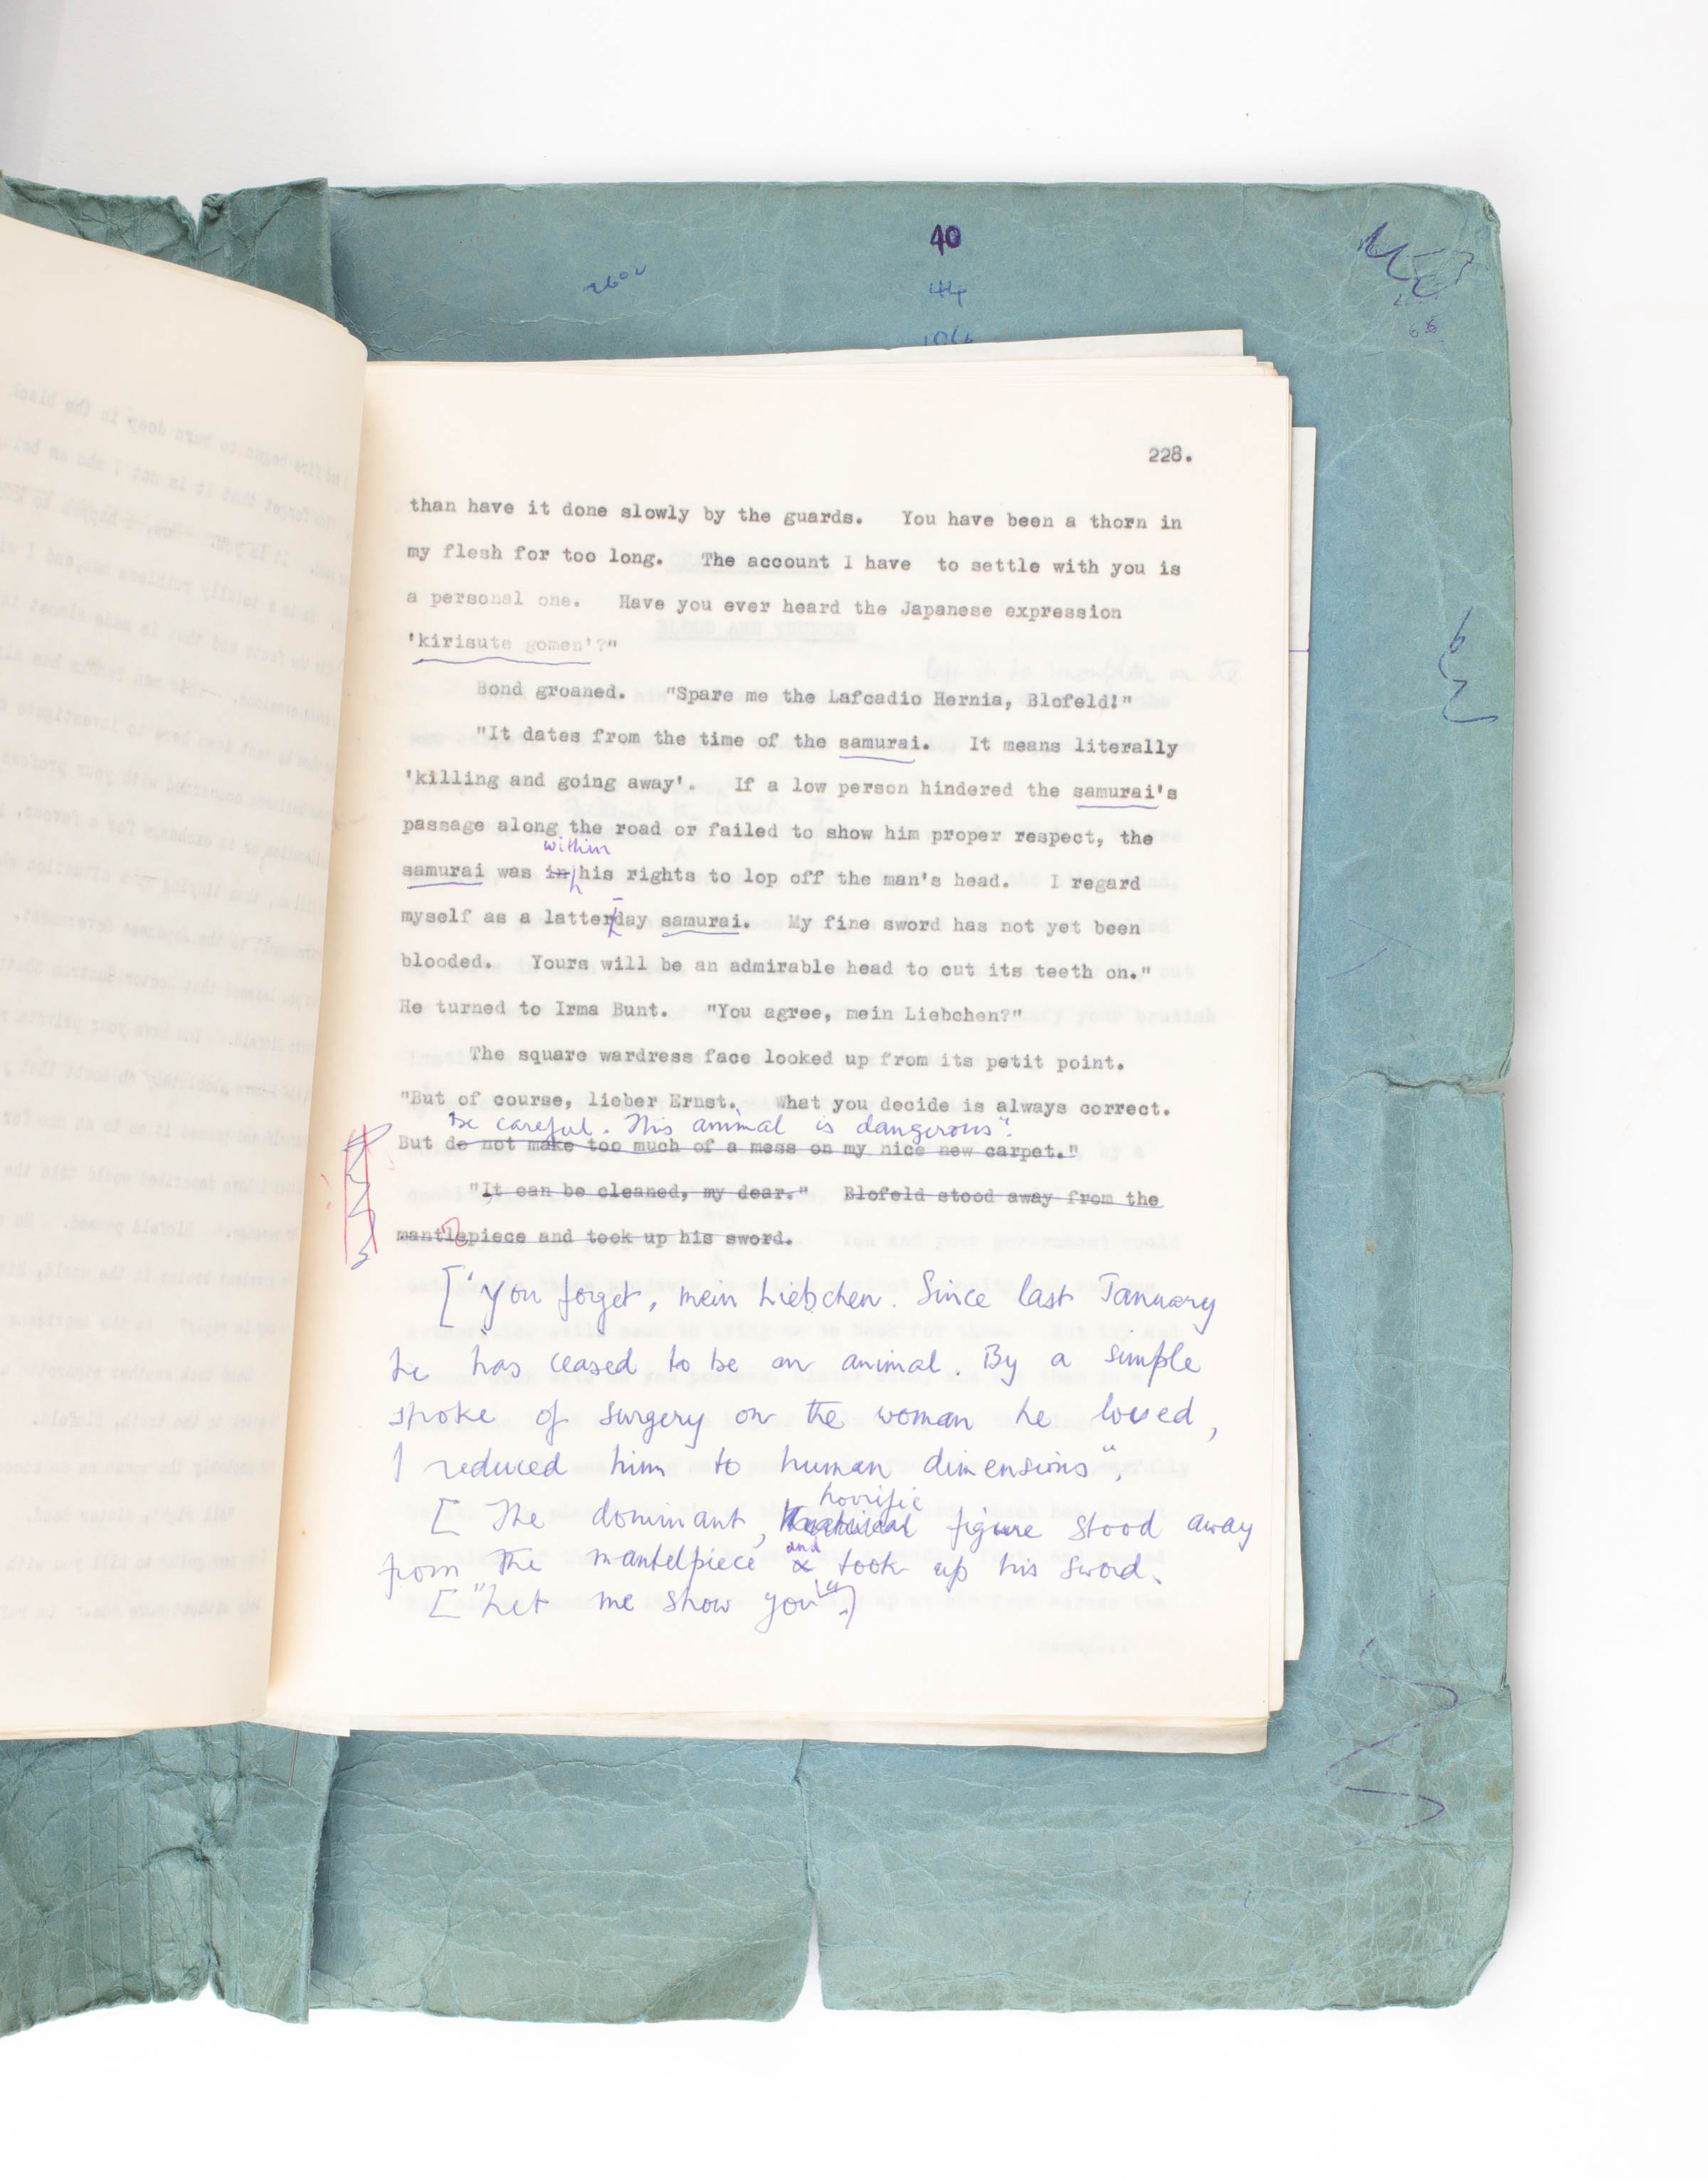 40
44
228.
than have it done slowly by the guards. You have been a thorn in
my flesh for too long. The account I have to settle with you is
a personal one. Have you ever heard the Japanese expression
'kirisute gomen'?"
Bond groaned. "Spare me the Lafcadio Hernia, Blofeld!"
"It dates from the time of the samurai. It means literally
'killing and going away'. If a low person hindered the samurai's
passage along the road or failed to show him proper respect, the
within
samurai was in his rights to lop off the man's head. I regard
myself as a latter-day samurai. My fine sword has not yet been
blooded. Yours will be an admirable head to cut its teeth on."
He turned to Irma Bunt. "You agree, mein Liebchen?"
The square wardress face looked up from its petit point.
"But of course, lieber Ernst. What you decide is always correct.
be careful. This animal is dangerous".
But do not make too much of a mess on my nice new carpet."
"It can be cleaned, my dear." Blofeld stood away from the
mantlepiece and took up his sword.
["You forget, mein Liebchen. Since last January
he has ceased to be an animal. By a simple
stroke of surgery on the woman he loved,
I reduced him to human dimensions".
horrific
[The dominant, figure stood away
and
from the mantelpiece & took up his sword.
["Let me show you".]